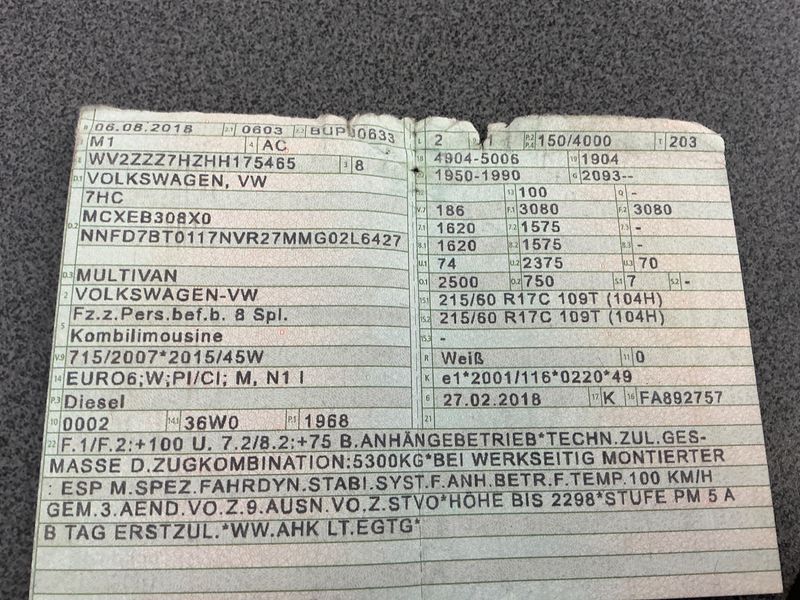 B 06.08.2018 2.1 0603 2.2 BUP 10633
J M1 4 AC
E WV2ZZZ7HZHH175465 3 8
D.1 VOLKSWAGEN, VW
7HC
D.2 MCXEB308X0
NNFD7BT0117NVR27MMG02L6427
D.3 MULTIVAN
2 VOLKSWAGEN-VW
5 Fz.z.Pers.bef.b. 8 Spl.
Kombilimousine
V.9 715/2007*2015/45W
14 EURO6;W;PI/CI; M, N1 I
P.3 Diesel
10 0002 14.1 36W0 P.1 1968
2 P.2 P.4 150/4000 T 203
18 4904-5006 19 1904
1950-1990 G 2093--
13 100 Q -
V.7 186 F.1 3080 F.2 3080
7.1 1620 7.2 1575 7.3 -
8.1 1620 8.2 1575 8.3 -
U.1 74 U.2 2375 U.3 70
O.1 2500 O.2 750 S.1 7 S.2 -
15.1 215/60 R17C 109T (104H)
15.2 215/60 R17C 109T (104H)
15.3 -
R Weiß 11 0
K e1*2001/116*0220*49
6 27.02.2018 17 K 16 FA892757
21
22 F.1/F.2:+100 U. 7.2/8.2:+75 B.ANHÄNGEBETRIEB*TECHN.ZUL.GES-
MASSE D.ZUGKOMBINATION:5300KG*BEI WERKSEITIG MONTIERTER
: ESP M.SPEZ.FAHRDYN.STABI.SYST.F.ANH.BETR.F.TEMP.100 KM/H
GEM.3.AEND.VO.Z.9.AUSN.VO.Z.STVO*HÖHE BIS 2298*STUFE PM 5 A
B TAG ERSTZUL.*WW.AHK LT.EGTG*